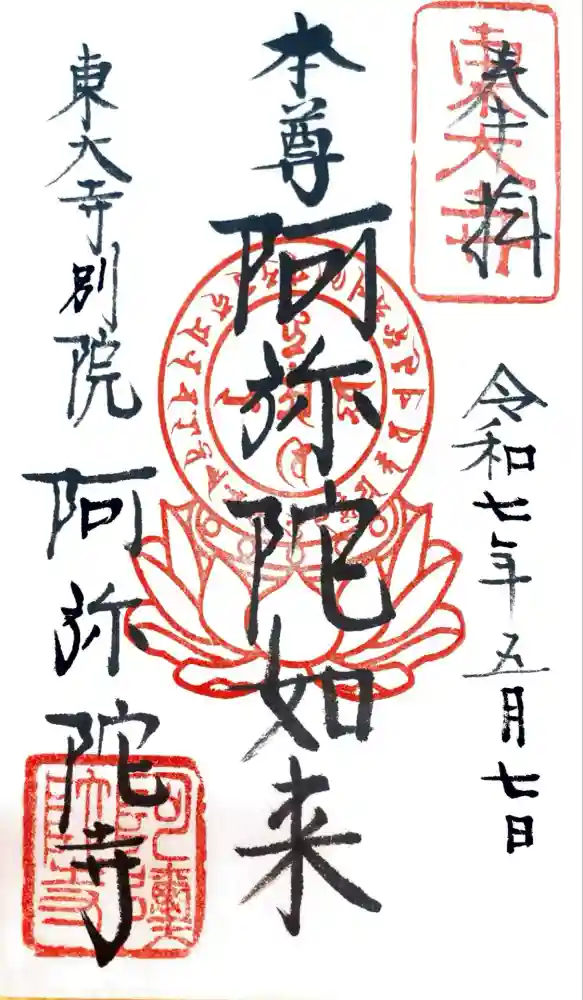 奉拝
東大寺
令和七年五月七日
本尊
阿弥陀如来
東大寺別院
阿弥陀寺